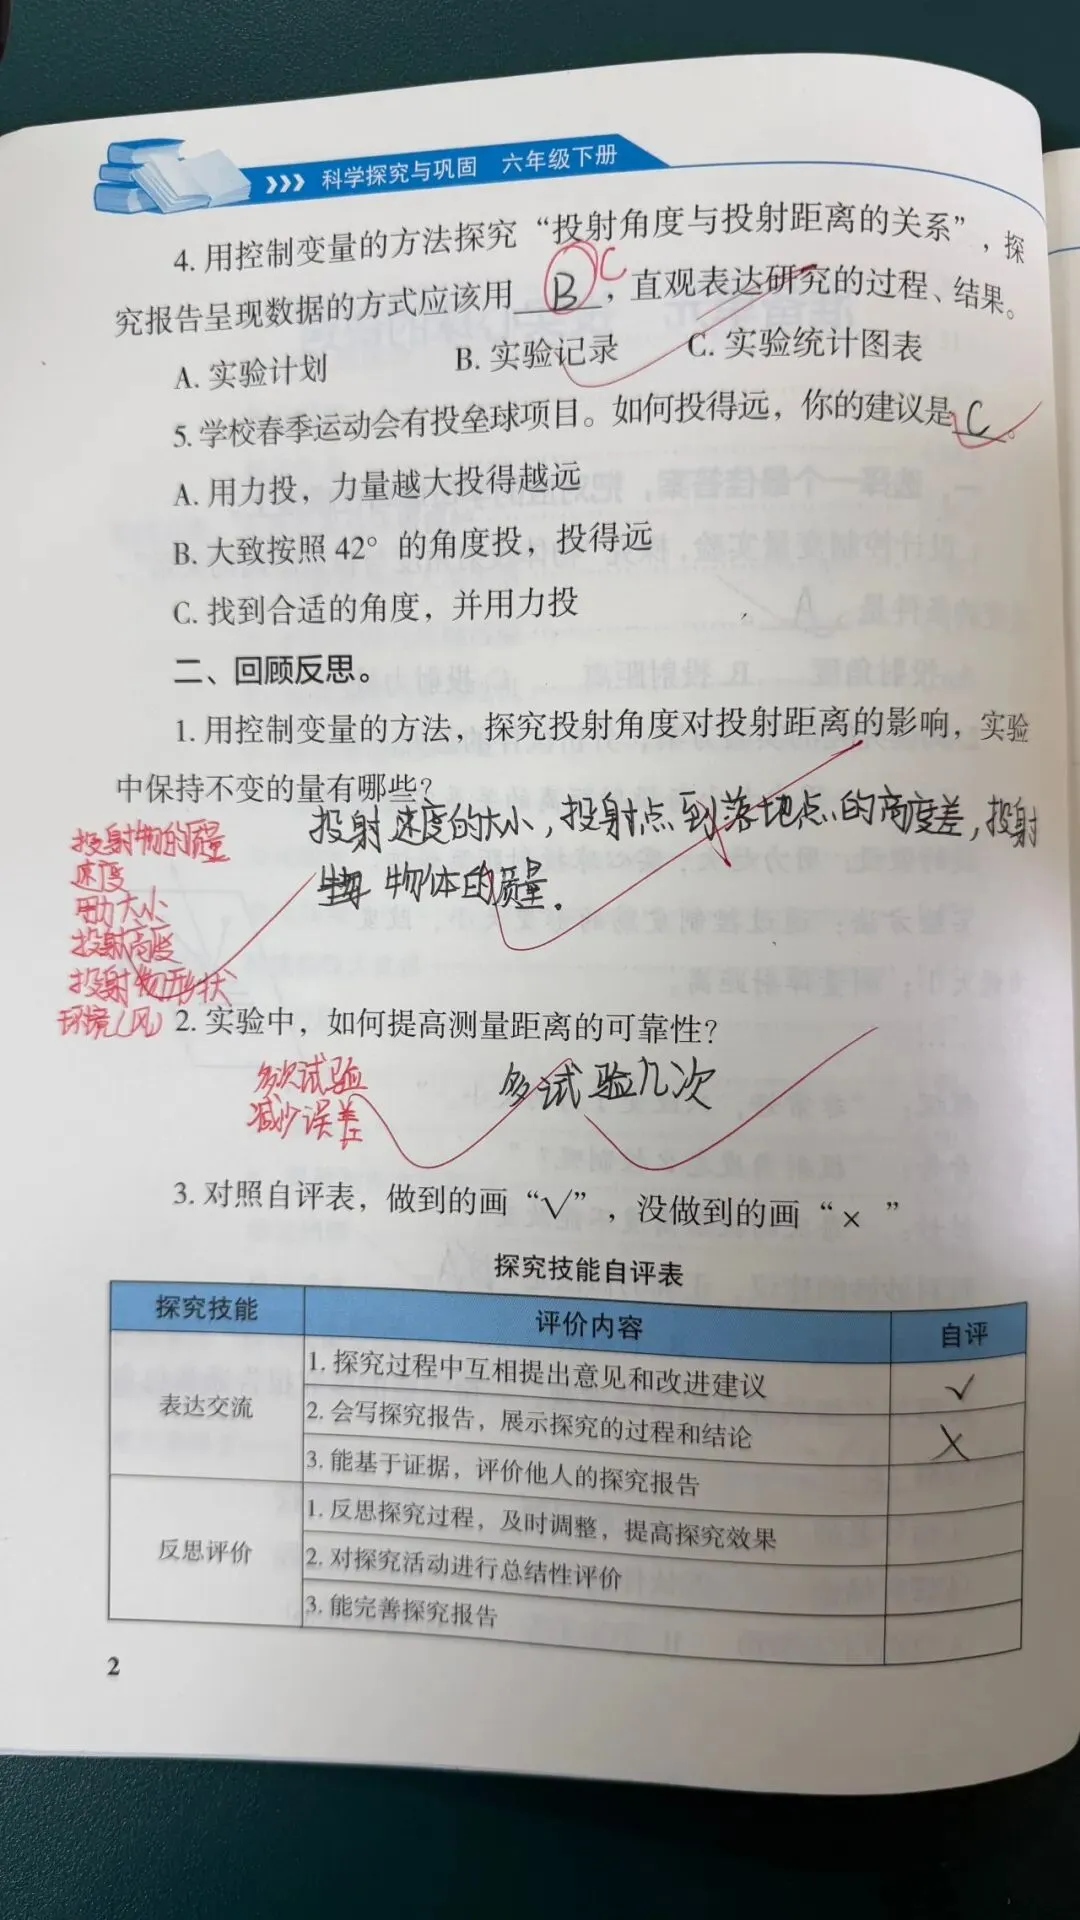 科学探究与巩固 六年级下册
4. 用控制变量的方法探究“投射角度与投射距离的关系”，探
究报告呈现数据的方式应该用 B C ，直观表达研究的过程、结果。
A. 实验计划 B. 实验记录 C. 实验统计图表
5. 学校春季运动会有投垒球项目。如何投得远，你的建议是 C 。
A. 用力投，力量越大投得越远
B. 大致按照 42° 的角度投，投得远
C. 找到合适的角度，并用力投
二、回顾反思。
1. 用控制变量的方法，探究投射角度对投射距离的影响，实验
中保持不变的量有哪些？
投射速度的大小，投射点到落地点的高度差，投射
物体的质量.
投射物的质量
速度
用力大小
投射高度
投射物形状
环境(风)
2. 实验中，如何提高测量距离的可靠性？
多试验几次
多次试验
减少误差
3. 对照自评表，做到的画“√”，没做到的画“×”
探究技能自评表
探究技能 评价内容 自评
表达交流
1. 探究过程中互相提出意见和改进建议 √
2. 会写探究报告，展示探究的过程和结论 ×
3. 能基于证据，评价他人的探究报告
反思评价
1. 反思探究过程，及时调整，提高探究效果
2. 对探究活动进行总结性评价
3. 能完善探究报告
2